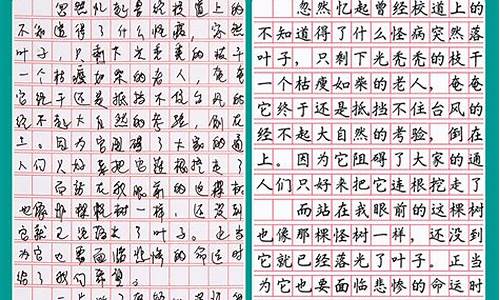 忽然忆起曾经校道上的
不知道得了什么怪病,突然
叶子,只剩下光秃秃的枝干
一个枯瘦如柴的老人,奄奄
它终于还是抵挡不住台风的
经不起大自然的考验,倒在
上。因为它阻碍了大家的通
人们只好来把它连根挖走了
而站在我眼前的这棵树
也像那棵怪树一样,还没到
它就已经落光了叶子。正当
为它也要面临悲惨的命运时
给了我们希望。
忽然忆起曾经校道上的
不知道得了什么怪病突然落
叶子,只剩下光秃秃的枝干
一个枯瘦如柴的老人,奄奄
它终于还是抵挡不住台风的
经不起大自然的考验,倒在
上。因为它阻碍了大家的通
人们只好来把它连根挖走了
而站在我眼前的这棵树
也像那棵怪树一样,还没到
它就已经落光了叶子。正当
为它也要面临悲惨的命运时